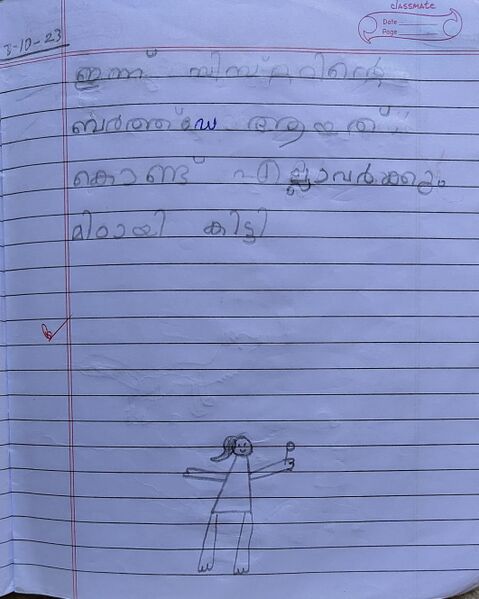 classmate
Date
Page
3-10-23
ഇന്ന് സിസ്റ്ററിന്റെ
ബർത്ത്ഡേ ആയത്
കൊണ്ട് എല്ലാവർക്കും
മിഠായി കിട്ടി